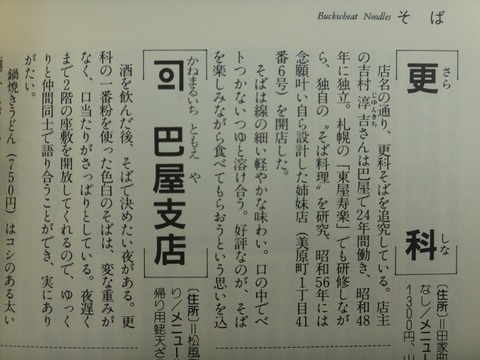 Buckwheat Noodles そば
更科
さら しな
〔住所〕=田家
なし/メニュ
1300円、山
店名の通り、更科そばを追究している。店主
の吉村淳吉さんは巴屋で24年間働き、昭和48
じゅんきち
年に独立。札幌の「東屋寿楽」でも研修しなが
ら、独自の〝そば料理〟を研究、昭和56年には
念願叶い自ら設計した姉妹店(美原町1丁目41
番6号)を開店した。
そばは線の細い軽やかな味わい。口の中でベ
トつかないつゆと溶け合う。好評なのが、そば
を楽しみながら食べてもらおうという思いを込
かねまるいち ともえ や
巴屋支店
〔住所〕=松風
り/メニュー
帰り用蛯天ざ
酒を飲んだ後、そばで決めたい夜がある。更
科の一番粉を使った色白のそばは、変な重みが
なく、口当たりがさっぱりとしている。夜遅く
まで2階の座敷を開放してくれるので、ゆっく
りと仲間同士で語り合うことができ、実にあり
がたい。
鍋焼きうどん(750円)はコシのある太い